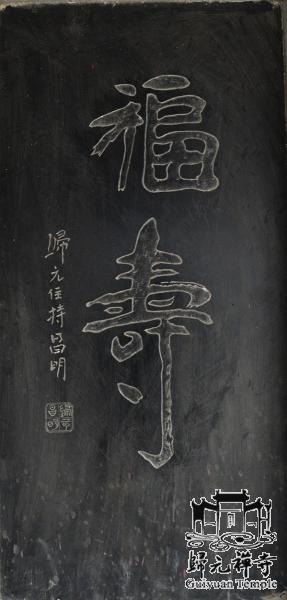 福寿
歸元住持昌明
歸元禅寺
Guiyuan Temple